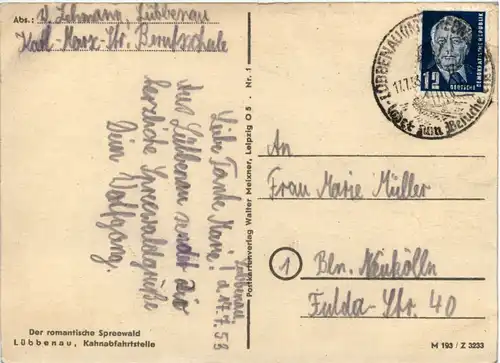 Abs.: W. Lehmann, Lübbenau
Karl-Marx-Str. Berufschule
Lübbenau
d. 17.7.53
Liebe Tante Marie!
Aus Lübbenau sendet Dir
herzliche Spreewaldgrüße
Dein Wolfgang.
Der romantische Spreewald
Lübbenau, Kahnabfahrtstelle
Postkartenverlag Walter Meixner, Leipzig O 5 · Nr. 1
LÜBBENAU
17.7.53
zum Besuche
12
DEUTSCHE
DEMOKRATISCHE REPUBLIK
An
Frau Marie Müller
1 Bln. Neukölln
Fulda-Str. 40
M 193 / Z 3233